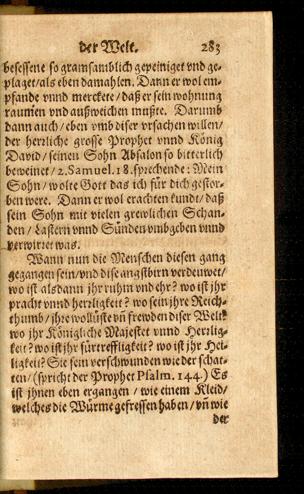 der Welt. 283
besessene so gramsamblich gepeiniget vnd ge-
plaget/als eben damahlen. Dann er wol em-
pfande vnnd merckete/daß er sein wohnung
raumen vnd außweichen mußte. Darumb
dann auch/eben vmb diser vrsachen willen/
der herzliche grosse Prophet vnnd König
David/seinen Sohn Absalon so bitterlich
beweinet/2. Samuel. 18. sprechende: Mein
Sohn/wolte Gott das ich für dich gestor-
ben were. Dann er wol erachten kundt/daß
sein Sohn mit vielen grewlichen Schan-
den/Lastern vnnd Sünden vmbgeben vnnd
verwirret was.
Wann nun die Menschen diesen gang
gegangen sein/vnd dise angstbirn verdeuwet/
wo ist alsdann jhr ruhm vnd ehr? wo ist jhr
pracht vnnd herzligkeit? wo sein jhre Reich-
thumb/jhre wollüste vñ frewden diser Welt?
wo jhr Königliche Majestet vnnd Herzlig-
keit? wo ist jhr fürtreffligkeit? wo ist jhr Hei-
ligkeit? Sie sein verschwunden wie der schat-
ten/(spricht der Prophet Psalm. 144.) Es
ist jhnen eben ergangen/wie einem Kleid/
welches die Würme gefressen haben/vñ wie
der